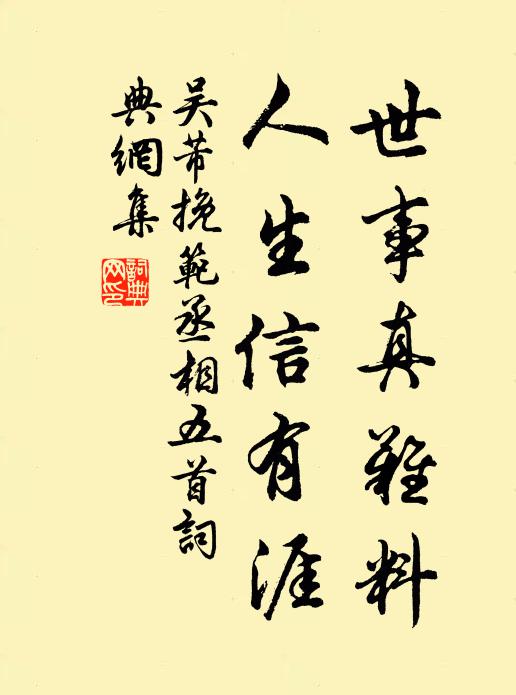 世事真難料
人生信有涯
吴芾挽範丞相五首詞
典網集
詞典网印